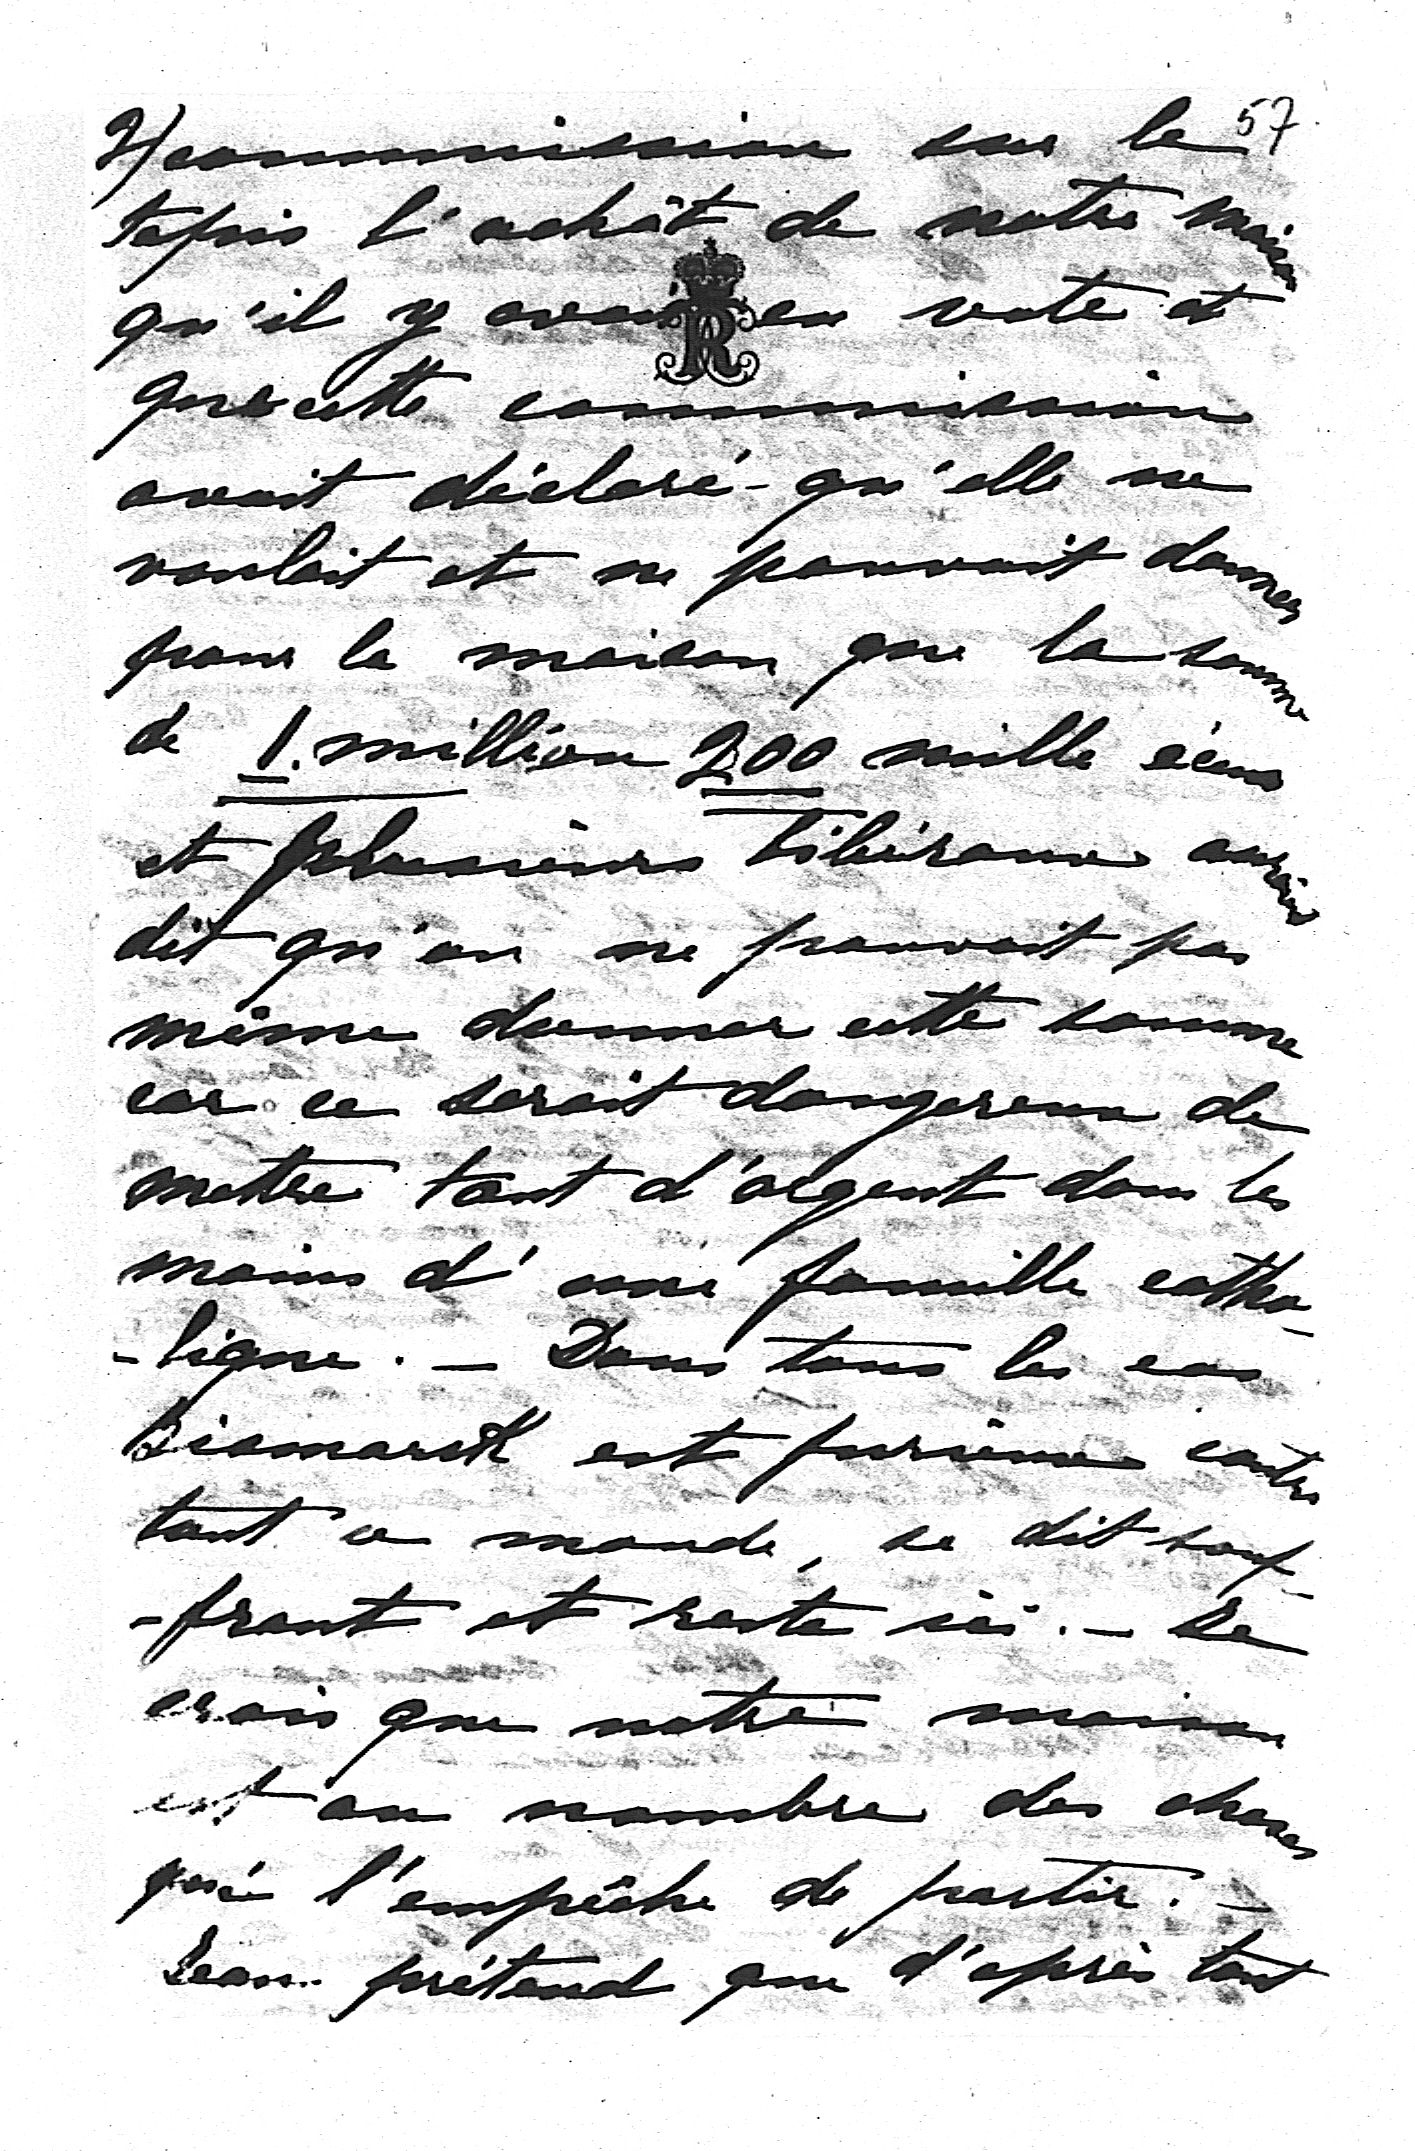 57
2) commission sur le
tapis l'achât de notre maison
qu'il y avait eu vote et
que cette commission
avait déclaré - qu'elle ne
voulait et ne pouvait donner
pour la maison que la somme
de 1. million 200 mille écus
et plusieurs libéraux auraient
dit qu'on ne pouvait pas
même donner cette somme
car ce serait dangereux de
mettre tant d'argent dans les
mains d'une famille catho-
-lique. - Dans tous les cas
Bismarck est furieux contre
tout ce monde, se dit souf-
-frant et reste ici. - Je
crois que notre maison
est au nombre des choses
qui l'empêche de partir. -
Jean prétend que d'après tout